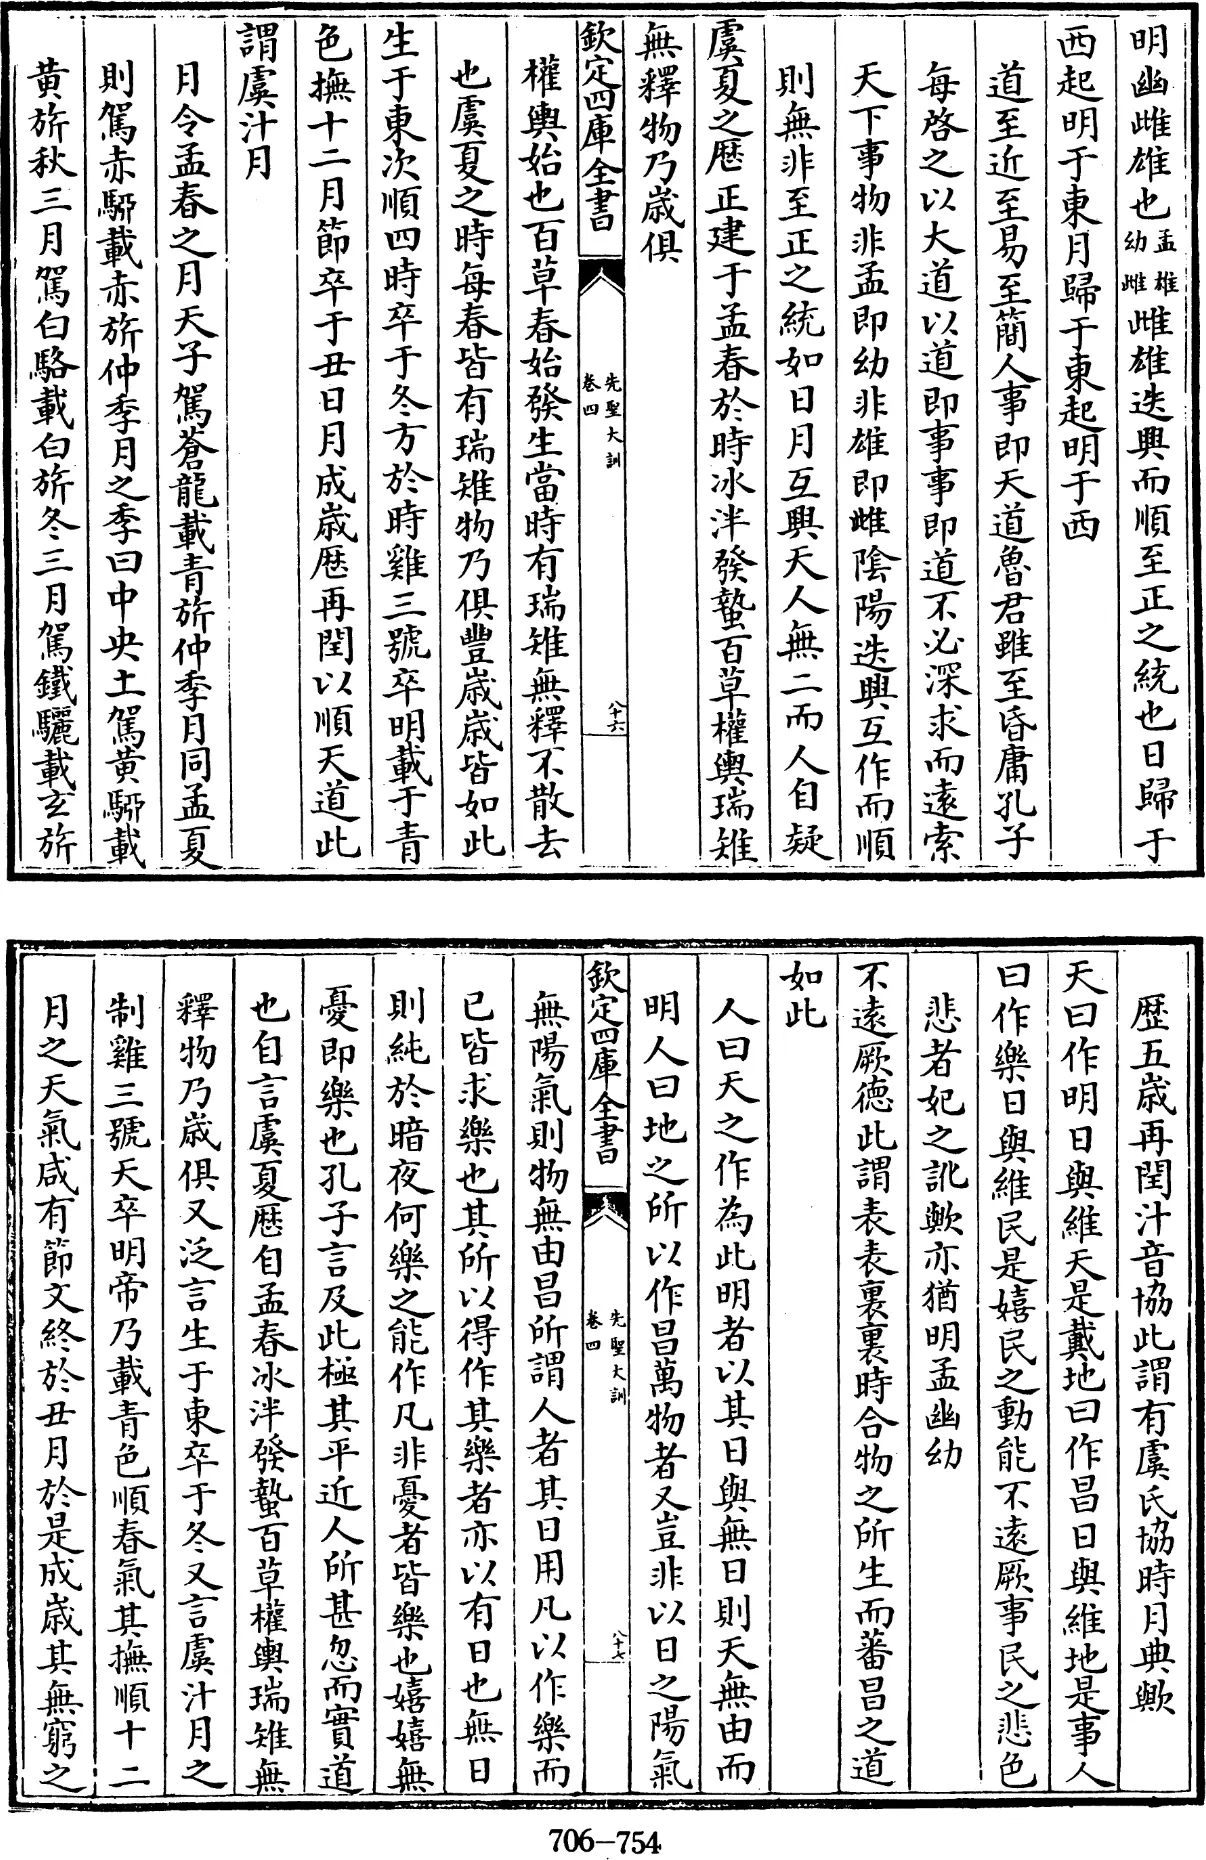 明幽雌雄也孟雄幼雌雌雄迭興而順至正之統也日歸于
西起明于東月歸于東起明于西
道至近至易至簡人事即天道魯君雖至昏庸孔子
每啓之以大道以道即事事即道不必深求而遠索
天下事物非孟即幼非雄即雌陰陽迭興互作而順
則無非至正之統如日月互興天人無二而人自疑
虞夏之厯正建于孟春於時冰泮發蟄百草權輿瑞雉
無釋物乃歳俱
欽定四庫全書
先聖大訓
卷四
八十六
權輿始也百草春始發生當時有瑞雉無釋不散去
也虞夏之時每春皆有瑞雉物乃俱豐歳歳皆如此
生于東次順四時卒于冬方於時雞三號卒明載于青
色撫十二月節卒于丑日月成歳厯再閏以順天道此
謂虞汁月
月令孟春之月天子駕蒼龍載青旂仲季月同孟夏
則駕赤騵載赤旂仲季月之季曰中央土駕黄騵載
黄旂秋三月駕白駱載白旂冬三月駕鐵驪載玄旂
歴五歳再閏汁音協此謂有虞氏協時月典歟
天曰作明日與維天是戴地曰作昌日與維地是事人
曰作樂日與維民是嬉民之動能不遠厥事民之悲色
悲者妃之訛歟亦猶明孟幽幼
不遠厥德此謂表表裏裏時合物之所生而蕃昌之道
如此
人曰天之作為此明者以其日與無日則天無由而
明人曰地之所以作昌萬物者又豈非以日之陽氣
欽定四庫全書
先聖大訓
卷四
八十七
無陽氣則物無由昌所謂人者其日用凡以作樂而
已皆求樂也其所以得作其樂者亦以有日也無日
則純於暗夜何樂之能作凡非憂者皆樂也嬉嬉無
憂即樂也孔子言及此極其平近人所甚忽而實道
也自言虞夏厯自孟春冰泮發蟄百草權輿瑞雉無
釋物乃歳俱又泛言生于東卒于冬又言虞汁月之
制雞三號天卒明帝乃載青色順春氣其撫順十二
月之天氣咸有節文終於丑月於是成歳其無窮之
706—754